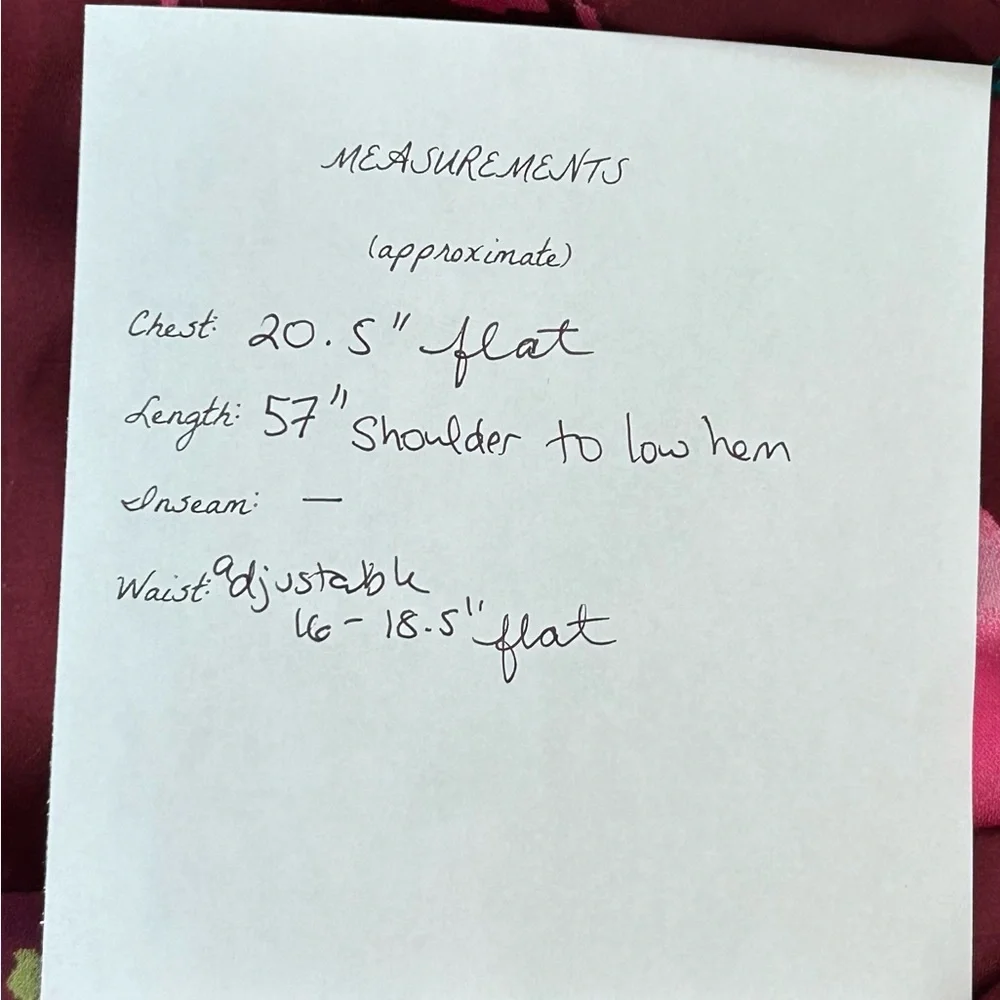 MEASUREMENTS
(approximate)
Chest: 20.5" flat
Length: 57" Shoulder to low hem
Inseam: —
Waist: adjustable
16 - 18.5" flat